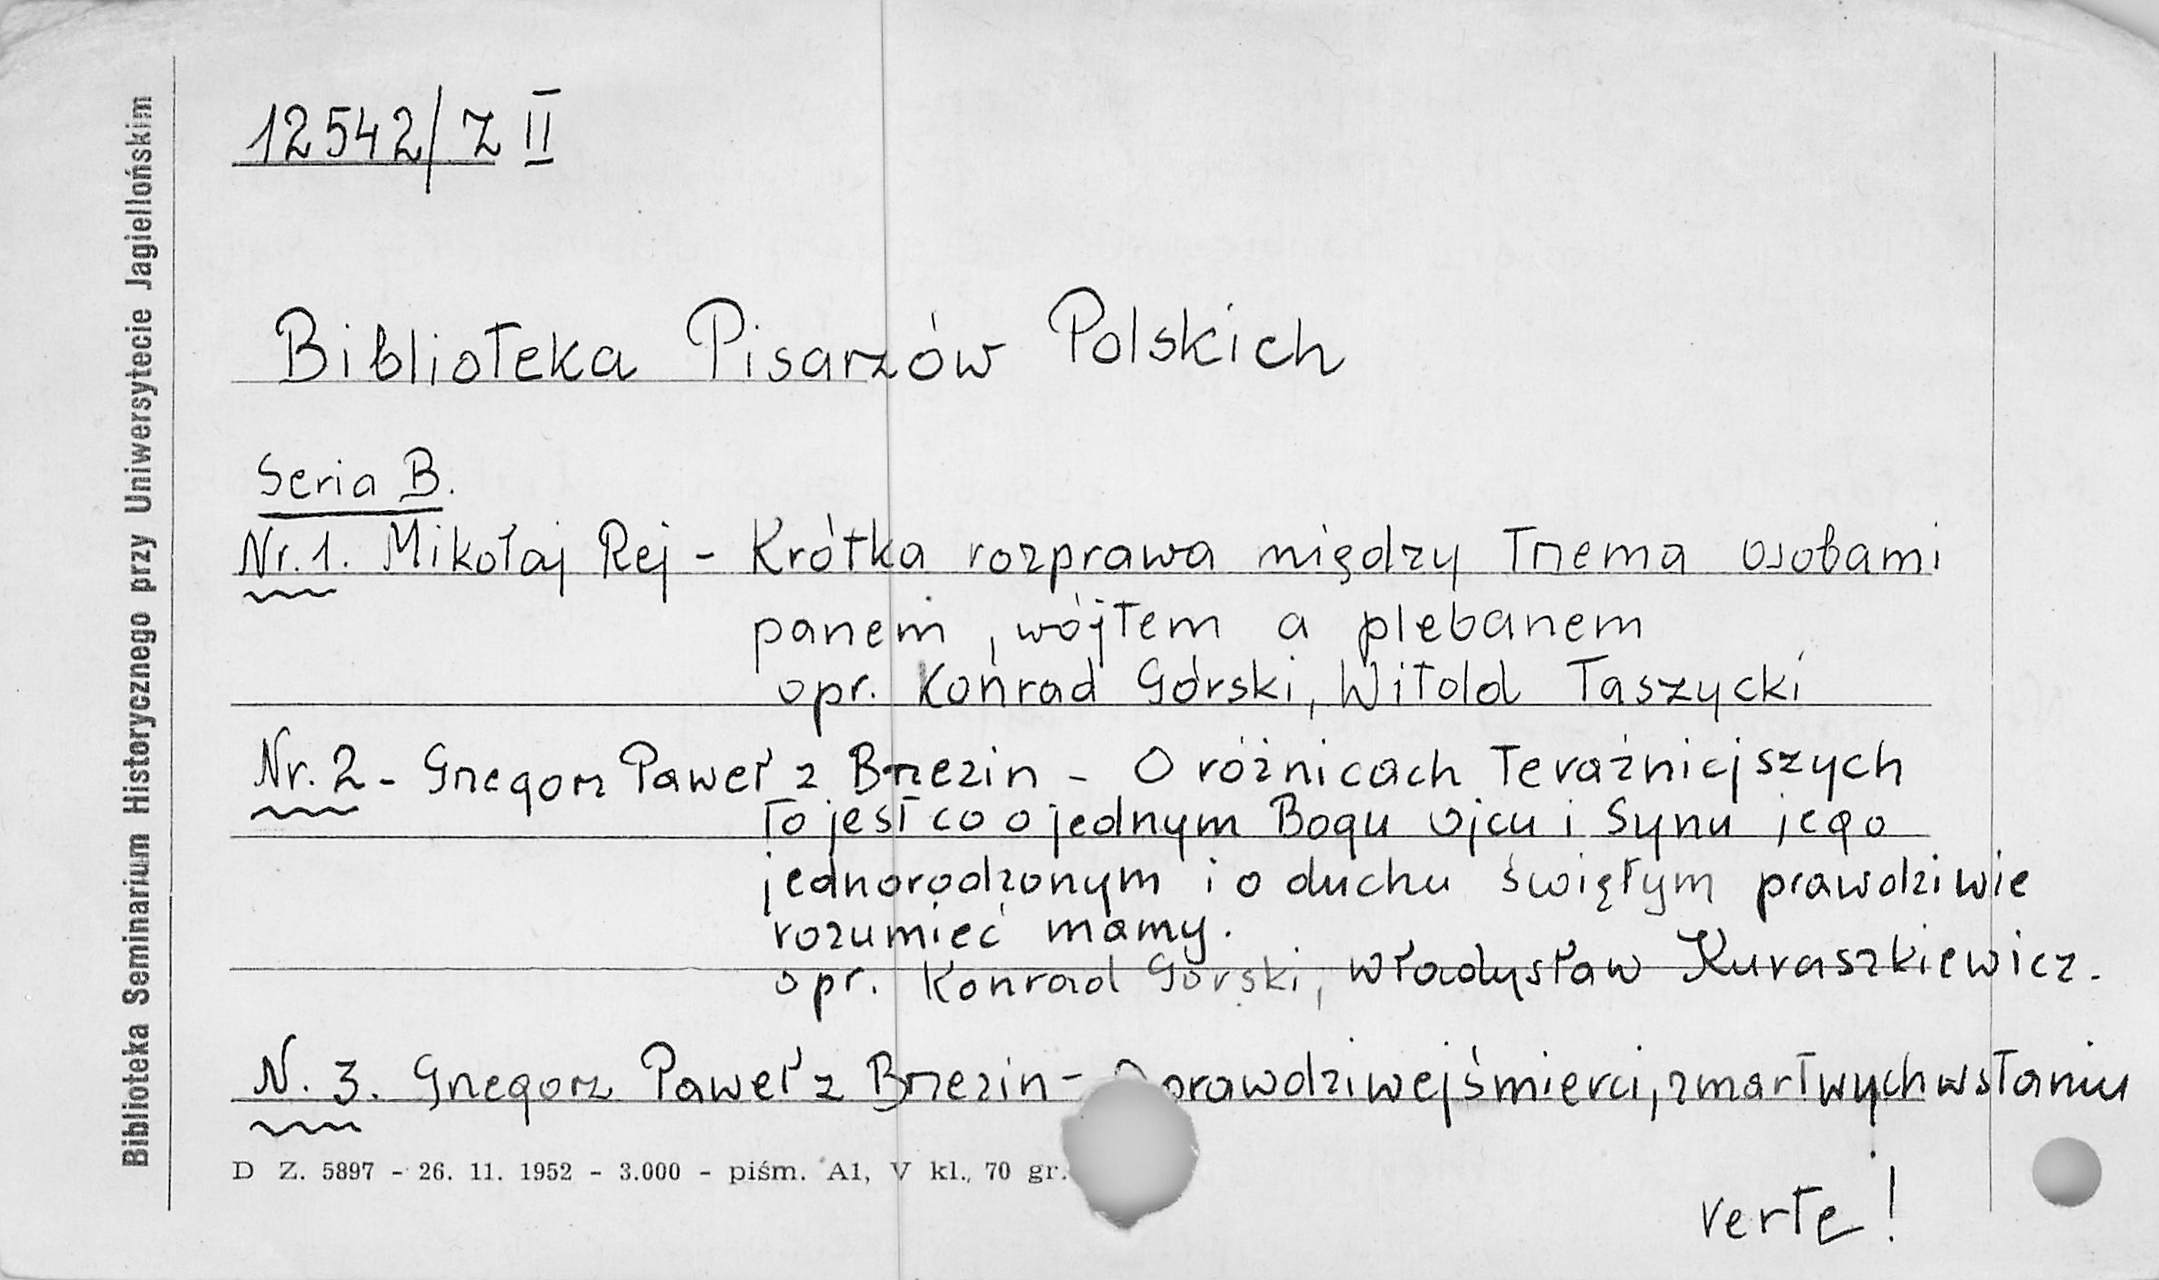 Biblioteka Seminarium Historycznego przy Uniwersytecie Jagiellońskim
12542/Z II
Biblioteka Pisarzów Polskich
Seria B.
Nr. 1. Mikołaj Rej - Krótka rozprawa między trzema osobami
panem, wójtem a plebanem
opr. Konrad Górski, Witold Taszycki
Nr. 2 - Grzegorz Paweł z Brzezin - O różnicach teraźniejszych
to jest co o jednym Bogu ojcu i Synu jego
jednorodzonym i o duchu świętym prawdziwie
rozumieć mamy.
opr. Konrad Górski, Władysław Kuraszkiewicz.
N. 3. Grzegorz Paweł z Brzezin - O prawdziwej śmierci, zmartwychwstaniu
D Z. 5897 - 26. 11. 1952 - 3.000 - piśm. A1, V kl., 70 gr.
verte!